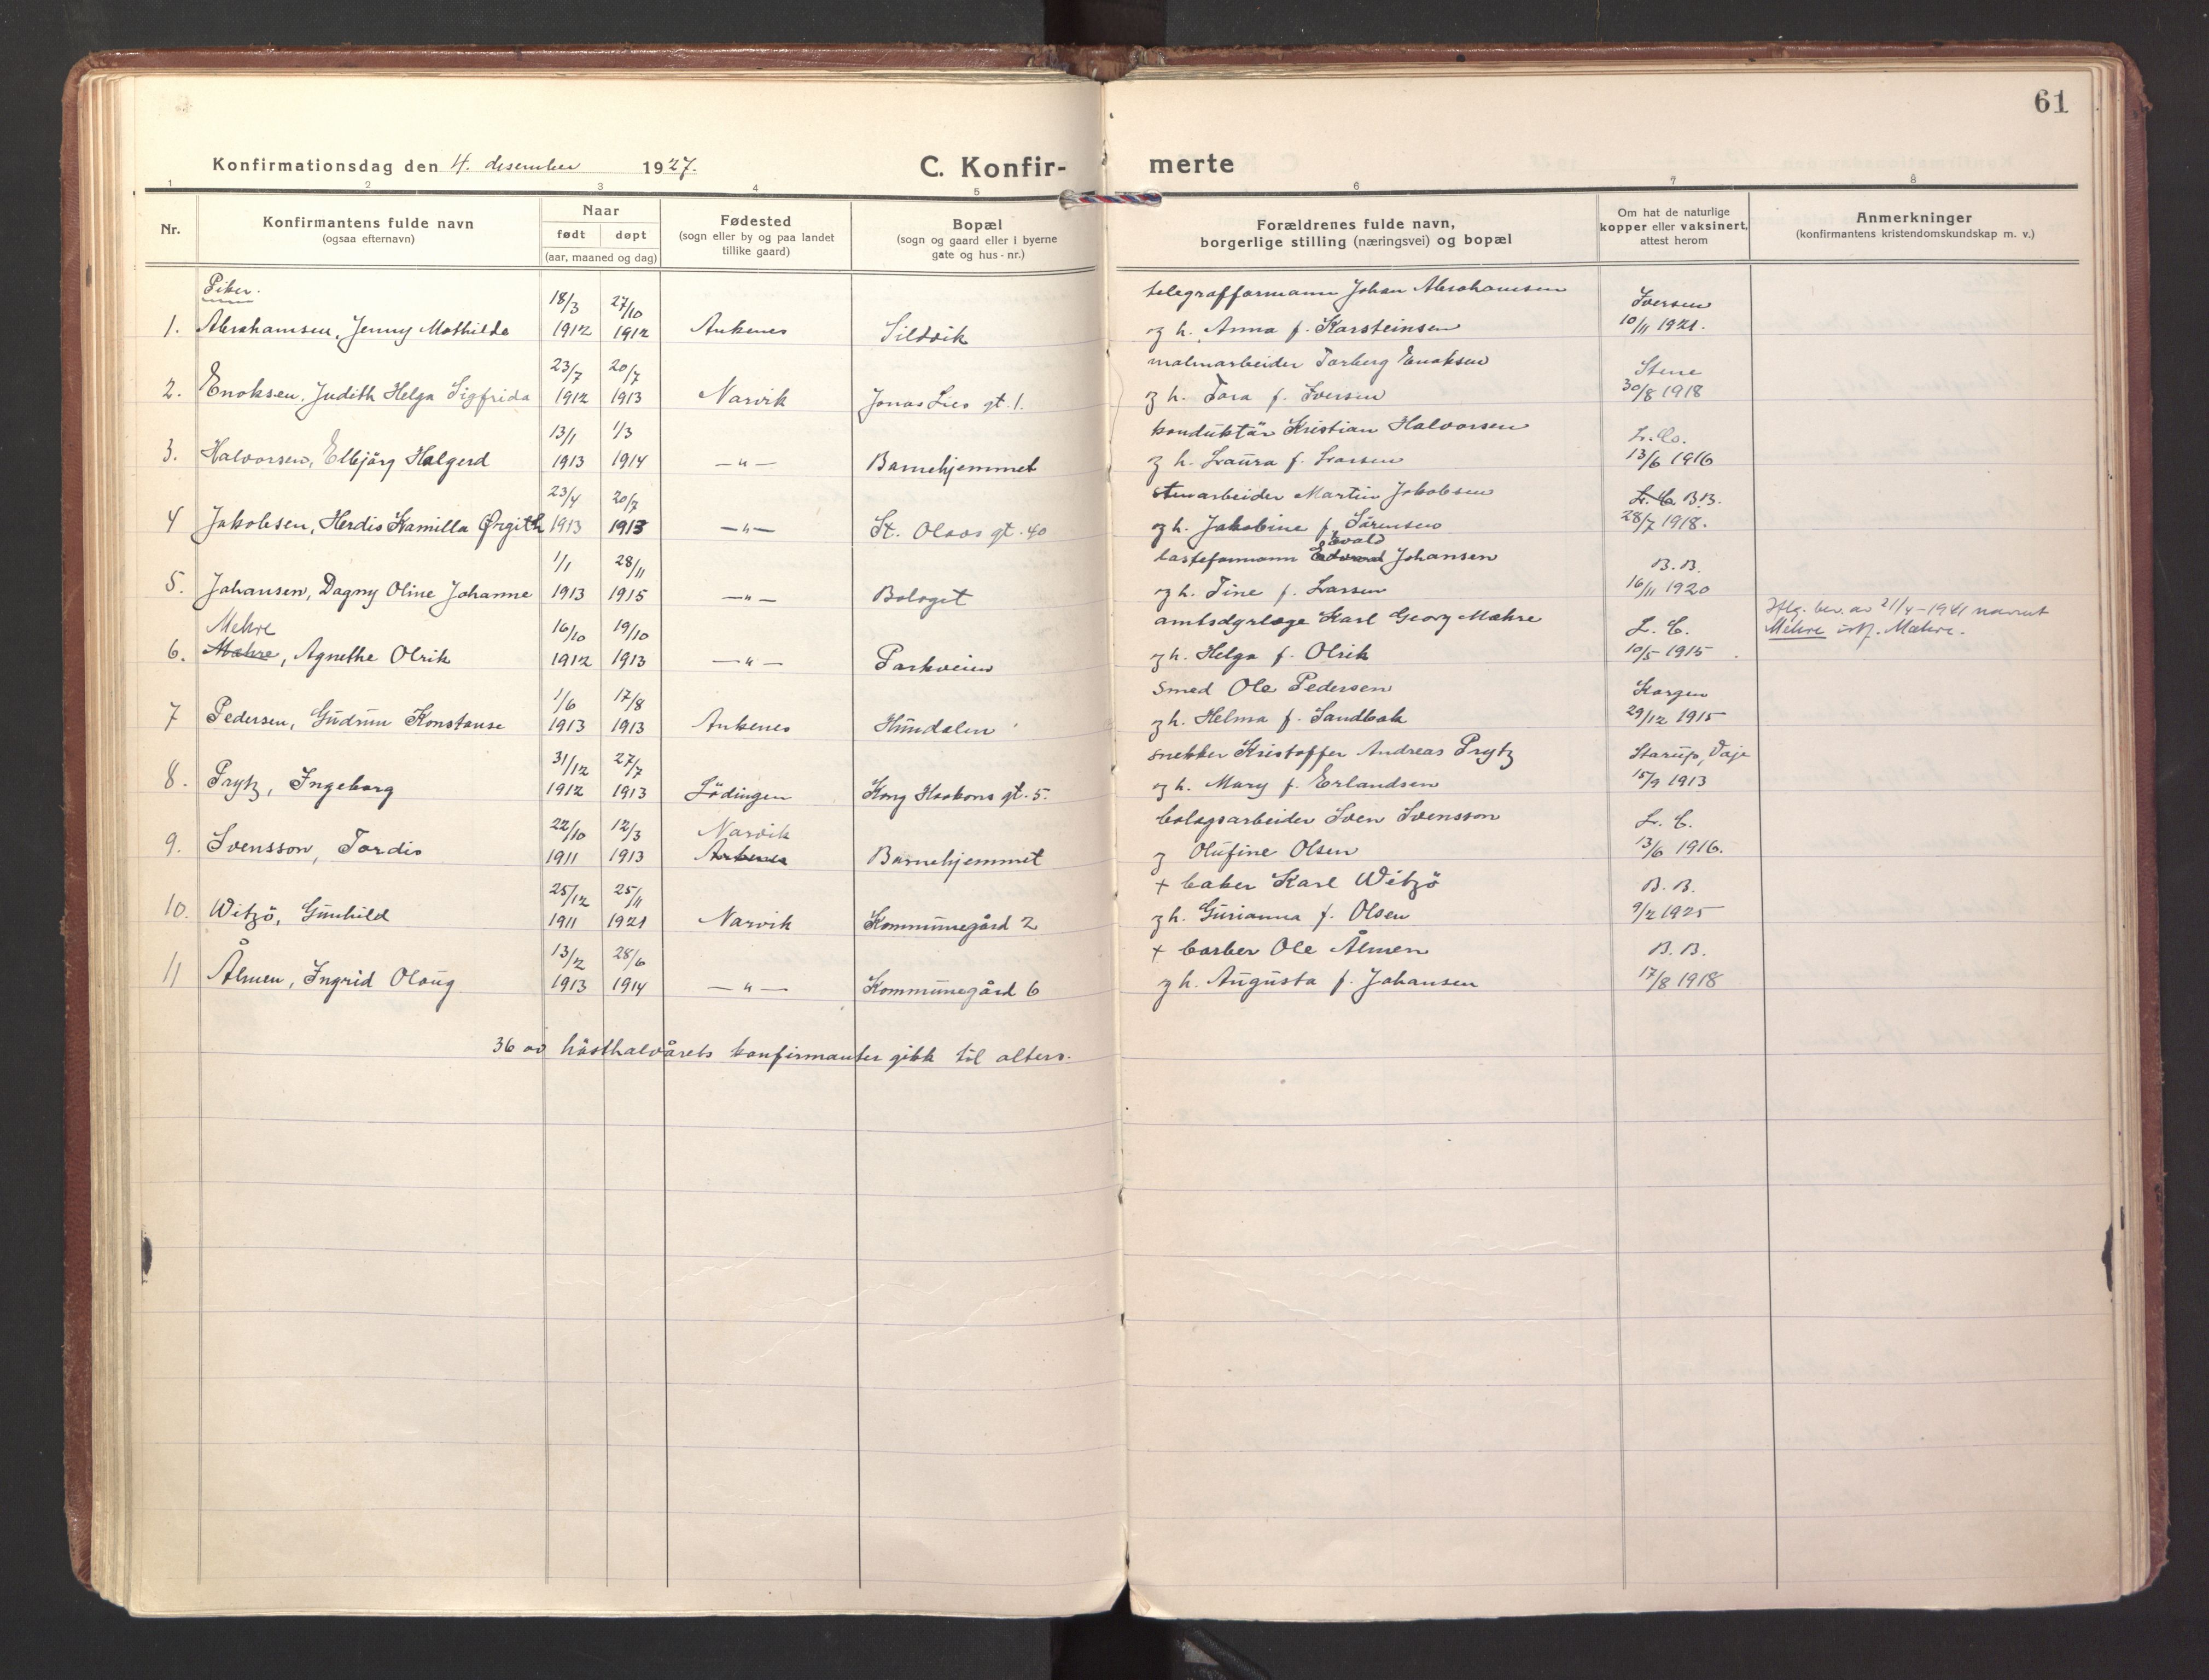 61
Konfirmationsdag den 4. desember 1927.
C. Konfir-merte
1 2 3 4 5 6 7 8
Nr.
Konfirmantens fulde navn
(ogsaa efternavn)
Naar
født døpt
(aar, maaned og dag)
Fødested
(sogn eller by og paa landet
tillike gaard)
Bopæl
(sogn og gaard eller i byerne
gate og hus-nr.)
Forældrenes fulde navn,
borgerlige stilling (næringsvei) og bopæl
Om hat de naturlige
kopper eller vaksinert,
attest herom
Anmerkninger
(konfirmantens kristendomskundskap m. v.)
Piker.
18/3 27/10 telegrafformann Johan Abrahamsen Iversen
1. Abrahamsen, Jenny Mathilde 1912 1912 Ankenes Sildvik og h. Anna f. Karsteinsen 10/11 1921.
23/7 20/7 malmarbeider Torberg Enoksen Stene
2. Enoksen, Judith Helga Sigfrida 1912 1913 Narvik Jonas Lies gt. 1. og h. Tora f. Iversen 30/8 1918
13/1 1/3 konduktör Kristian Halvorsen L. Co.
3. Halvorsen, Elbjörg Halgerd 1913 1914 —"— Barnehjemmet og h. Laura f. Larsen 13/6 1916
23/4 20/7 stenarbeider Martin Jakobsen L. C. B.B.
4 Jakobsen, Herdis Kamilla Ørgith 1913 1913 —"— St. Olavs gt. 40 og h. Jakobine f. Sörensen 28/7 1918.
Evald
1/1 28/11 lasteformann Edvard Johansen B. B.
5. Johansen, Dagny Oline Johanne 1913 1915 —"— Bolaget og h. Tine f. Larsen 16/11 1920
Mehre 16/10 19/10 amtsdyrlæge Karl Georg Mæhre L. C. Iflg. bev. av 21/4-1941 navnet
6. Mæhre, Agnethe Olrik 1912 1913 —"— Parkveien og h. Helga f. Olrik 10/5 1915 Mehre istf. Mæhre.
1/6 17/8 smed Ole Pedersen Korgen
7 Pedersen, Gudrun Konstanse 1913 1913 Ankenes Hundalen og h. Helma f. Sandbak 29/12 1915
31/12 27/7 snekker Kristoffer Andreas Prytz Starup, Vaje
8. Prytz, Ingeborg 1912 1913 Lödingen Kong Haakons gt. 5. og h. Mary f. Erlandsen 15/9 1913
22/10 12/3 Narvik bolagsarbeider Sven Svensson L. C.
9. Svensson, Tordis 1911 1913 Ankenes Barnehjemmet og Olufine Olsen 13/6 1916.
25/12 25/11 + baker Karl Witzö B. B.
10. Witzö, Gunhild 1911 1921 Narvik Kommunegård 2 og h. Gurianna f. Olsen 9/2 1925
13/2 28/6 + barber Ole Ålmen B. B.
11 Ålmen, Ingrid Olaug 1913 1914 —"— Kommunegård 6 og h. Augusta f. Johansen 17/8 1918
36 av hösthalvårets konfirmanter gikk til alters.